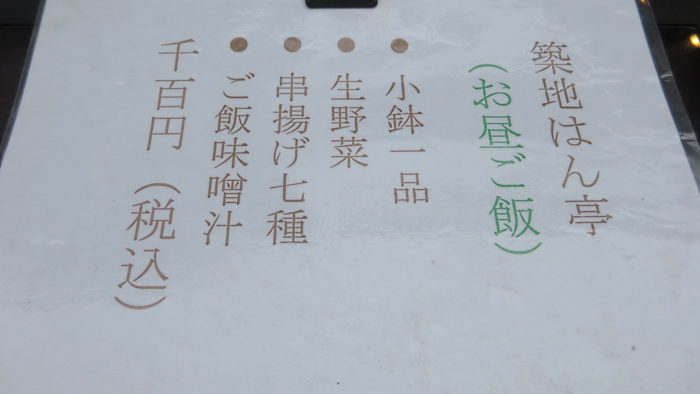 築地はん亭
（お昼ご飯）
● 小鉢一品
● 生野菜
● 串揚げ七種
● ご飯味噌汁
千百円（税込）